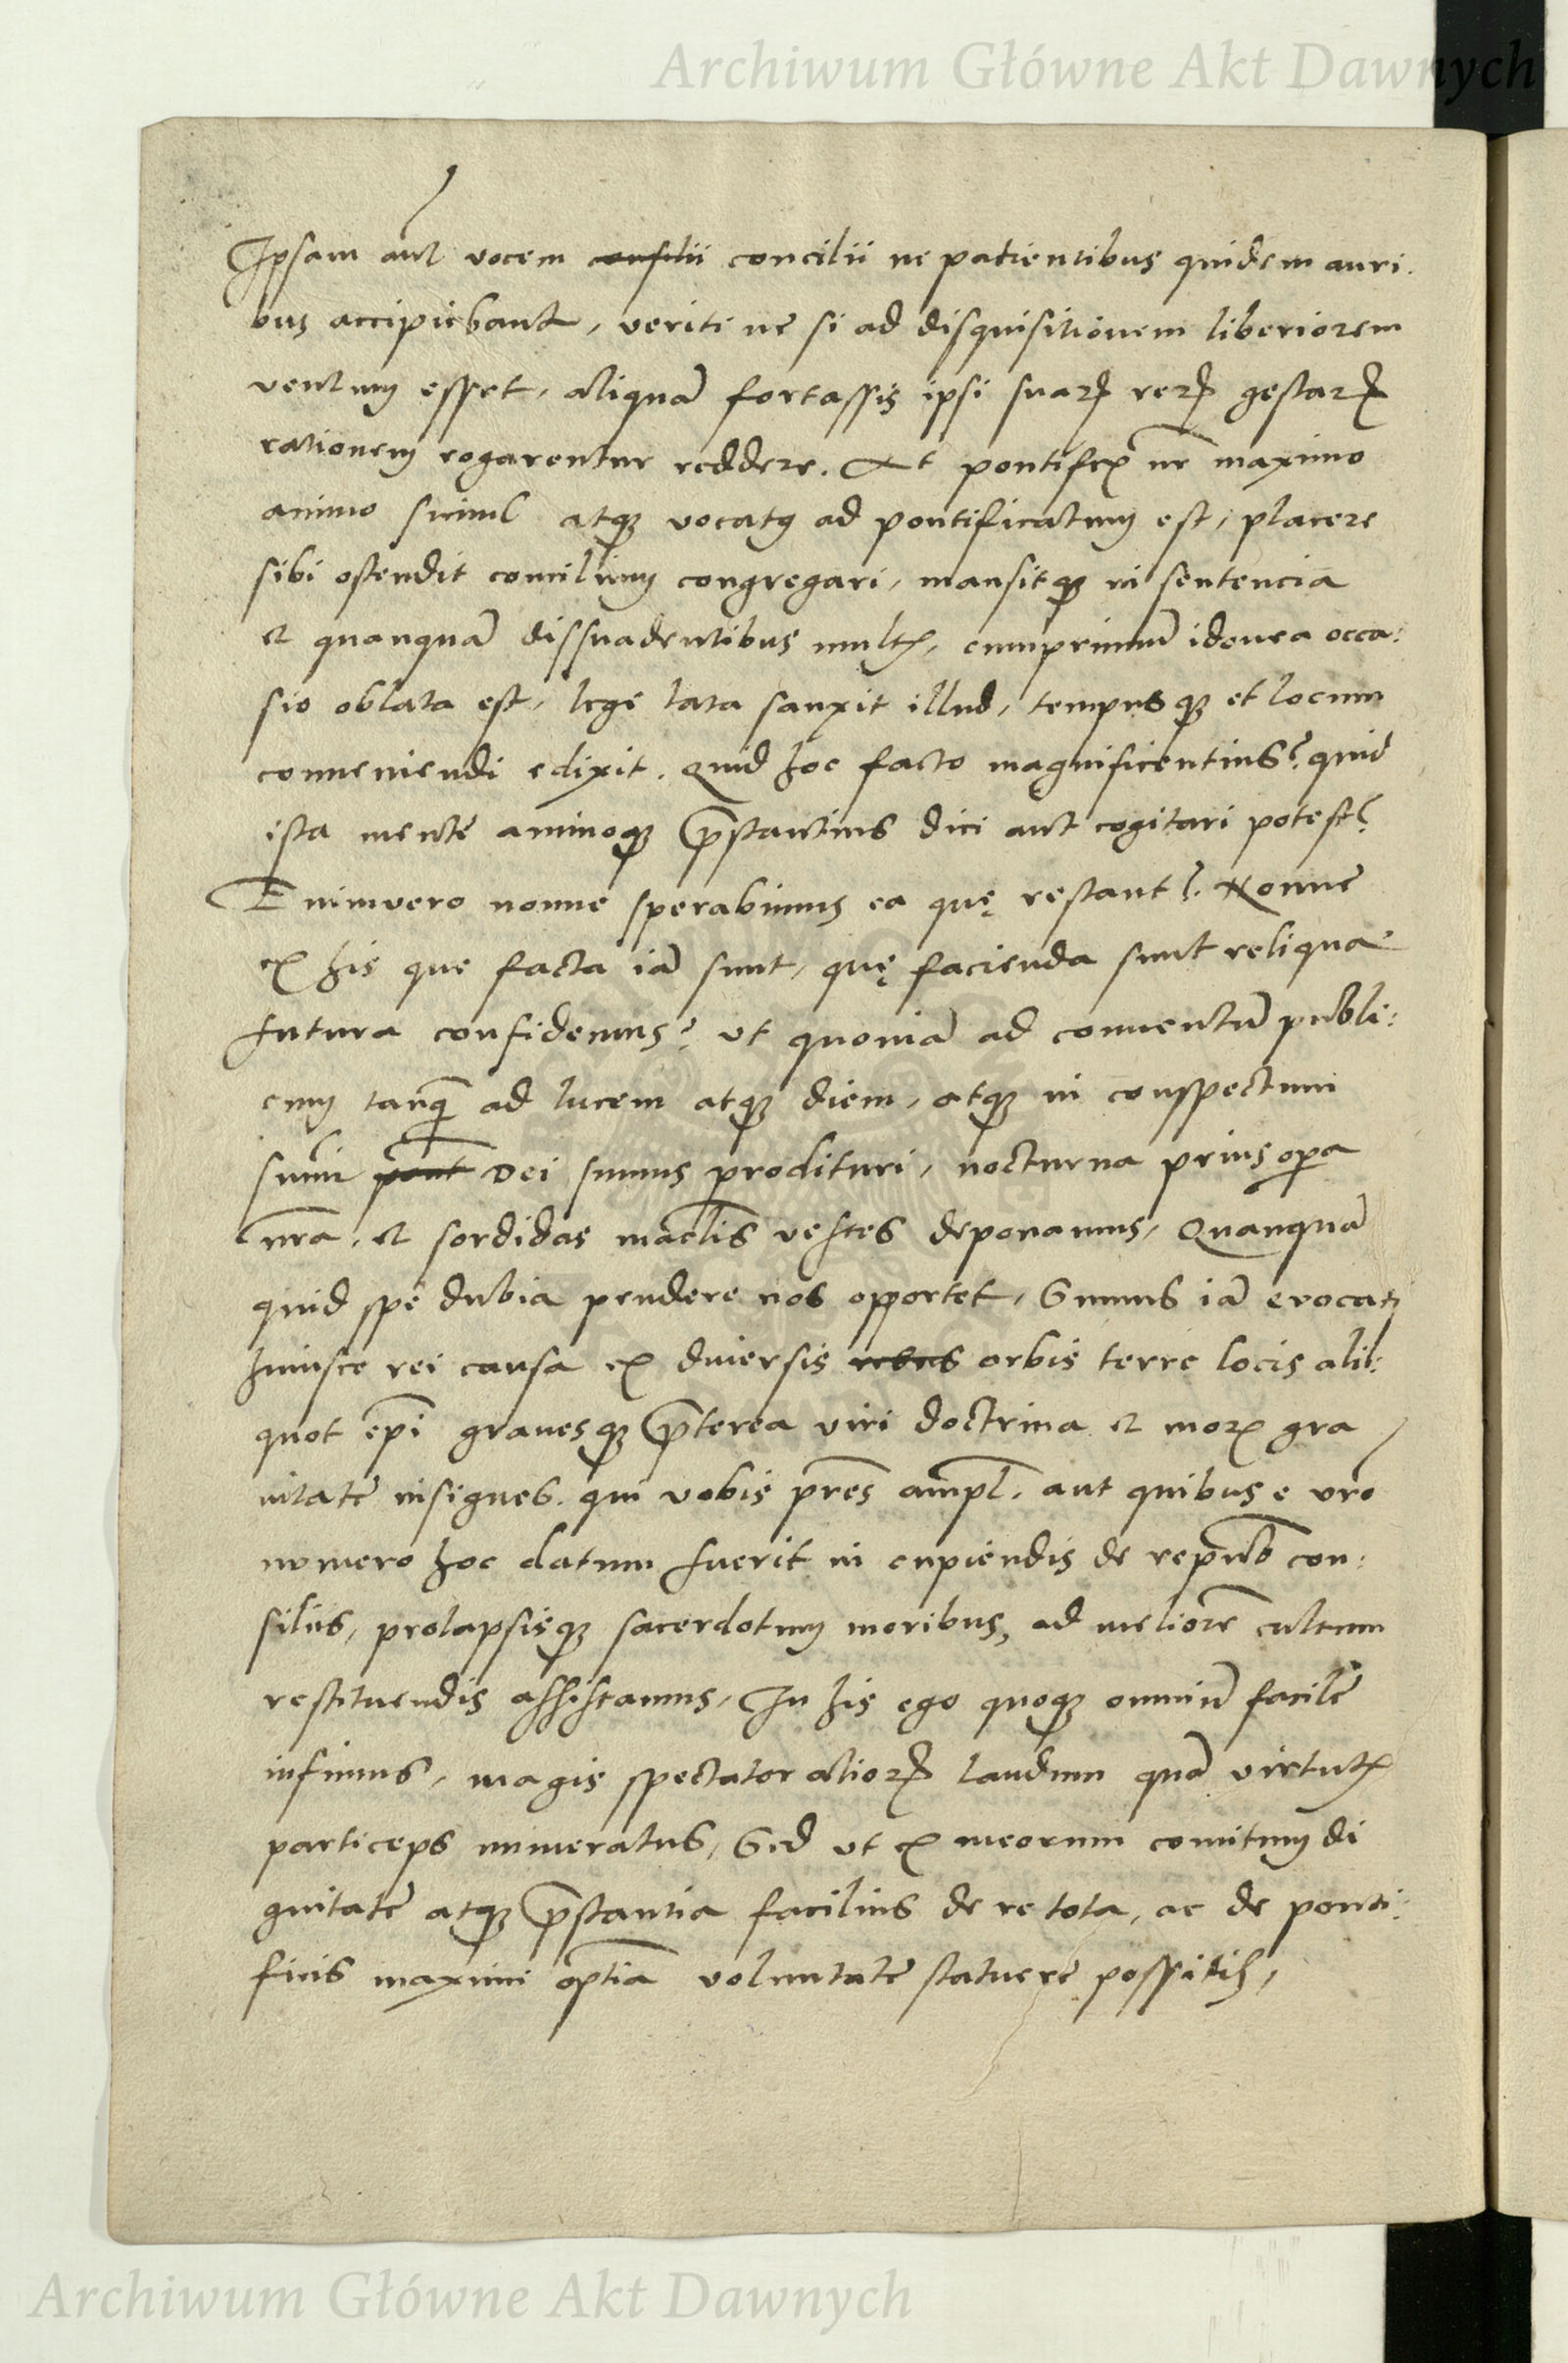 Archiwum Główne Akt Dawnych
Ipsam aūt vocem consilii concilii ne patientibus quidem auri:
bus accipiebant, veriti ne si ad disquisitionem liberiorem
ventum esset, aliquā fortassis ipsi suaꝝ reꝝ gestaꝝ
rationem rogarentur reddere. At pontifex nr̄ maximo
animo simul atqꝫ vocatꝰ ad pontificatum est, placere
sibi ostendit concilium congregari, mansitqꝫ in sentencia
et quanquā dissuadentibus multis, cumprimum idonea occa:
sio oblata est, lege lata sanxit illud, tempusqꝫ et locum
conveniendi edixit. Quid hoc facto magnificentius? quid
ista mente animoqꝫ p̄stantius dici aut cogitari potest?
Enimvero nonne sperabimus ea quę restant? Nonne
ex his que facta iā sunt, quę facienda sunt reliqua
futura confidemus? ut quoniā ad conventū publi:
cum tanq̄ ad lucem atqꝫ diem, atqꝫ in conspectum
summi pont Dei sumus prodituri, nocturna prius opa
nr̄a, et sordidas maculis vestes deponamus, Quanquā
quid spe dubia pendere nos opportet, Sumus iā evocati
huiusce rei causa ex diversis rebus orbis terre locis ali:
quot ep̄i gravesqꝫ p̄terea viri doctrina et moꝝ gra
vitate insignes. qui vobis pr̄es amp̄l. aut quibus e vr̄o
numero hoc datum fuerit in cupiendis de repub̄ con:
siliis, prolapsisqꝫ sacerdotum moribus, ad meliorē cultum
restituendis assistamus, In his ego quoqꝫ omniū facile
infimus, magis spectator alioꝝ laudum quā virtutis
particeps numeratus, Sed ut ex meorum comitum di
gnitate atqꝫ p̄stantia facilius de re tota, ac de ponti:
ficis maximi optīa voluntate statuere possitis,
Archiwum Główne Akt Dawnych